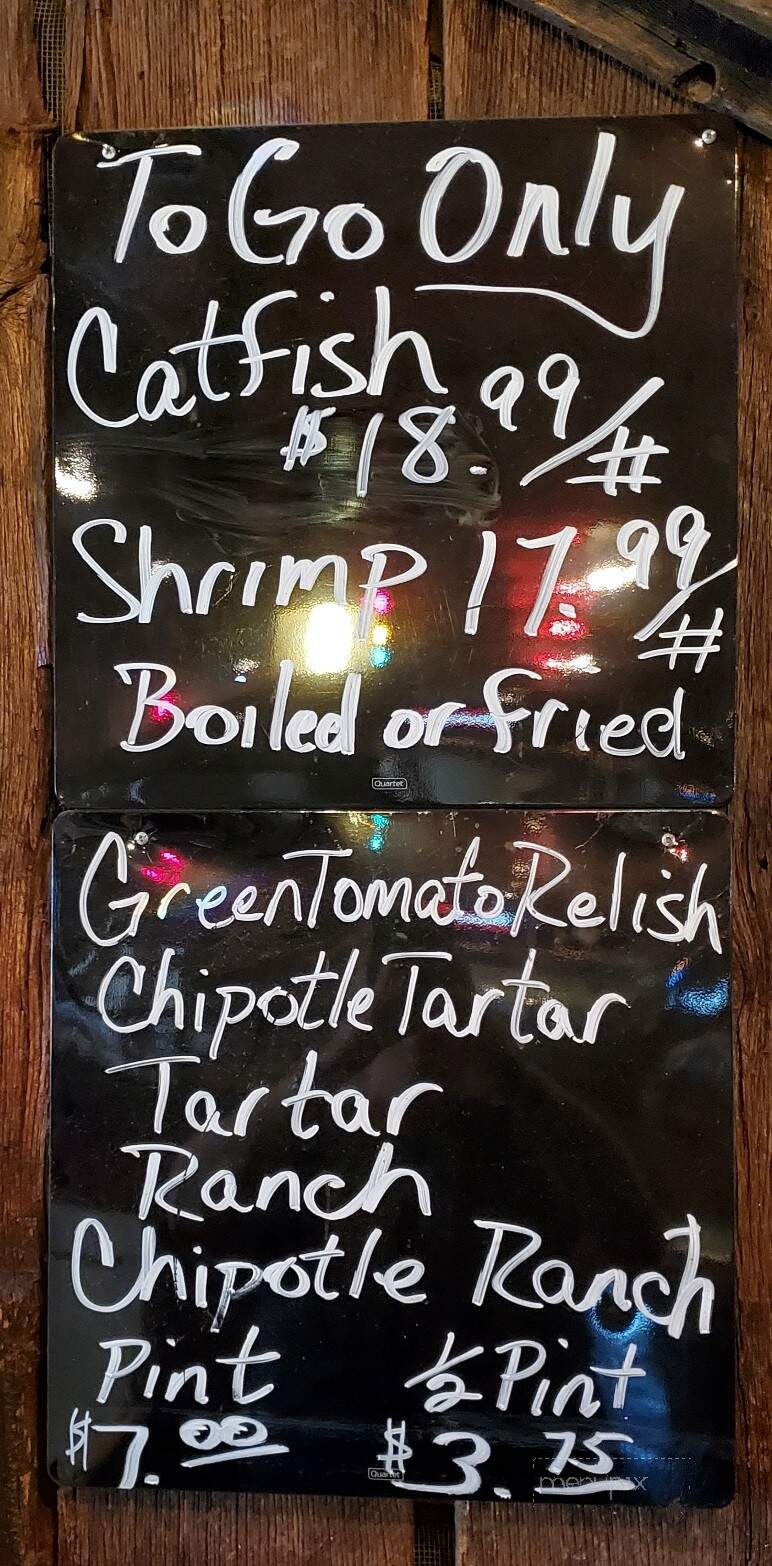 To Go Only
Catfish
$18.99/#
Shrimp 17.99/#
Boiled or fried
Quartet
Green Tomato Relish
Chipotle Tartar
Tartar
Ranch
Chipotle Ranch
Pint ½ Pint
$7.00 $3.75
Quartet
menupix